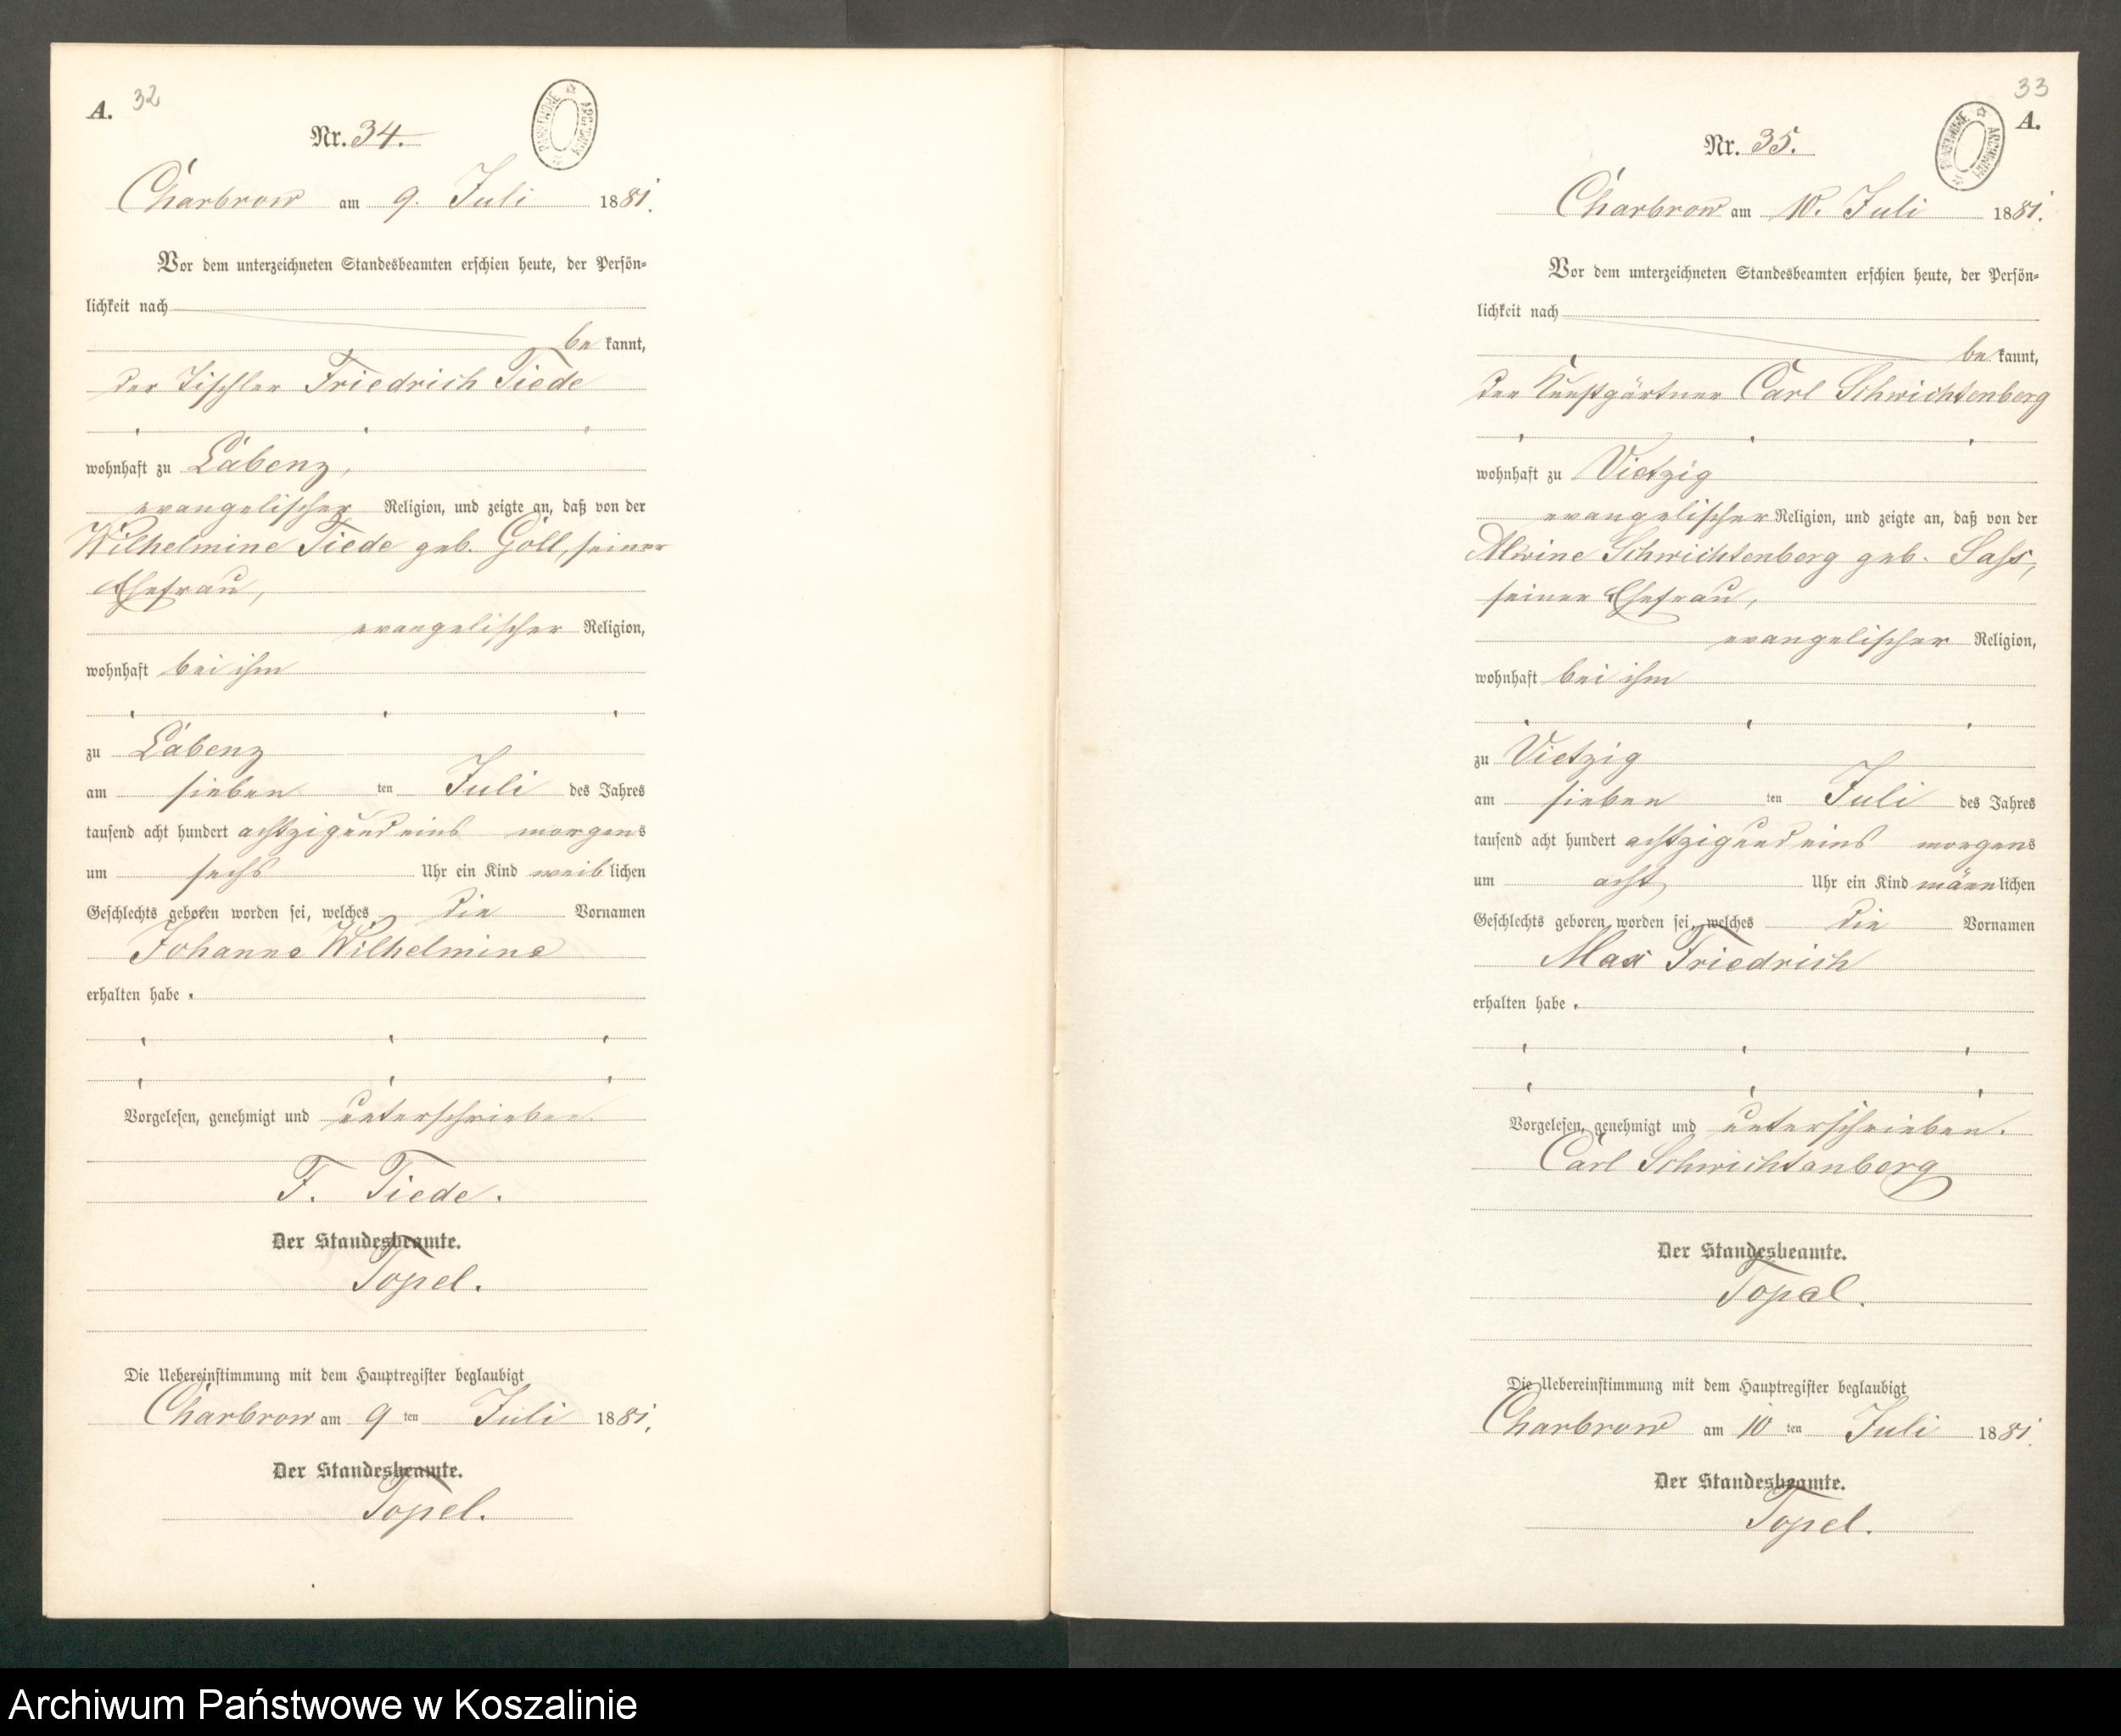 A. 32
Nr. 34.
ARCHIWUM PAŃSTWOWE
Charbrow am 9. Juli 1881.
Vor dem unterzeichneten Standesbeamten erschien heute, der Persön-
lichkeit nach
be kannt,
der Tischler Friedrich Tiede
wohnhaft zu Labenz,
evangelischer Religion, und zeigte an, daß von der
Wilhelmine Tiede geb. Göll, seiner
Ehefrau,
evangelischer Religion,
wohnhaft bei ihm
zu Labenz
am sieben ten Juli des Jahres
tausend acht hundert achtzig und eins morgens
um sechs Uhr ein Kind weib lichen
Geschlechts geboren worden sei, welches die Vornamen
Johanne Wilhelmine
erhalten habe .
Vorgelesen, genehmigt und unterschrieben.
F. Tiede.
Der Standesbeamte.
Topel.
Die Uebereinstimmung mit dem Hauptregister beglaubigt
Charbrow am 9 ten Juli 1881.
Der Standesbeamte.
Topel.
33
A.
Nr. 35.
ARCHIWUM PAŃSTWOWE
Charbrow am 10. Juli 1881.
Vor dem unterzeichneten Standesbeamten erschien heute, der Persön-
lichkeit nach
be kannt,
der Kunstgärtner Carl Schwichtenberg
wohnhaft zu Vietzig
evangelischer Religion, und zeigte an, daß von der
Alwine Schwichtenberg geb. Sass,
seiner Ehefrau,
evangelischer Religion,
wohnhaft bei ihm
zu Vietzig
am sieben ten Juli des Jahres
tausend acht hundert achtzig und eins morgens
um acht Uhr ein Kind männ lichen
Geschlechts geboren worden sei, welches die Vornamen
Max Friedrich
erhalten habe .
Vorgelesen, genehmigt und unterschrieben.
Carl Schwichtenberg
Der Standesbeamte.
Topel.
Die Uebereinstimmung mit dem Hauptregister beglaubigt
Charbrow am 10 ten Juli 1881.
Der Standesbeamte.
Topel.
Archiwum Państwowe w Koszalinie